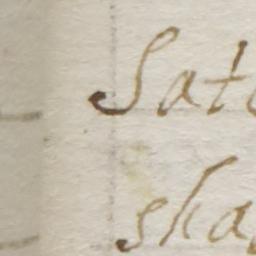 Sat
sha